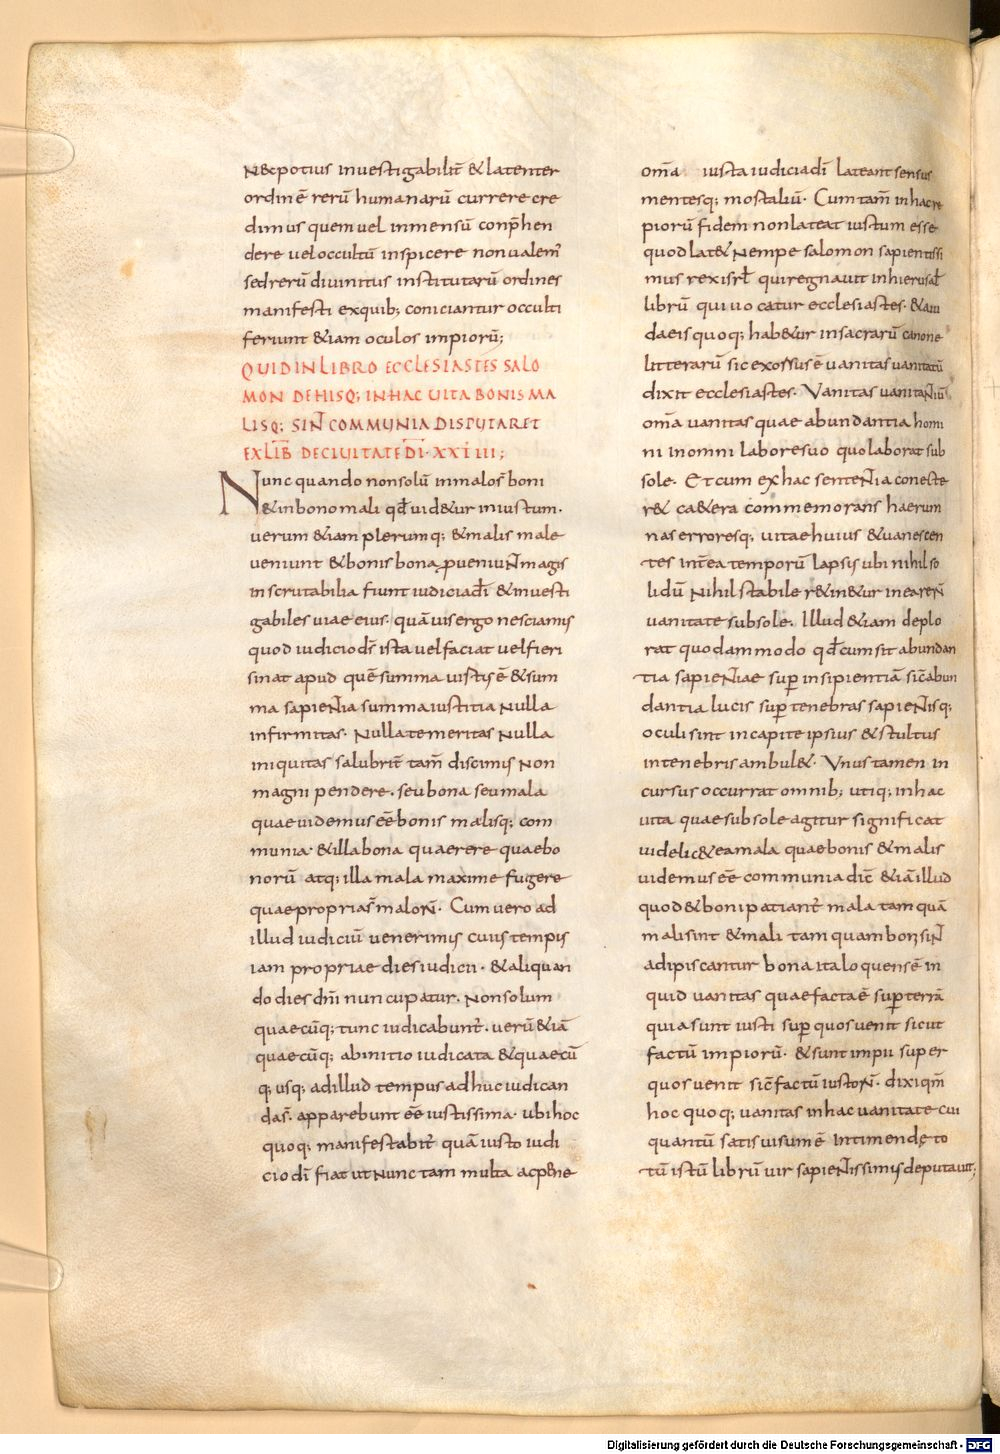 N&potius inuestigabilit̄ & latenter
ordinē rerū humanarū currere cre
dimus quem uel inmensū conp̄hen
dere uel occultū inspicere non ualem᾿
sed rerū diuinitus institutarū ordines
manifesti exquib; coniciantur occulti
feriunt &iam oculos impiorū;
QUID IN LIBRO ECCLESIASTES SALO
MON DE HISQ; IN HAC UITA BONIS MA
LISQ; SINT COMMUNIA DISPUTARET
EX LIB̄ DE CIUITATE DĪ · XXIIII;
Nunc quando non solū in malos boni
& in bono mali qd̄ uid&ur iniustum·
uerum &iam plerumq; & malis male
ueniunt & bonis bona ꝓueniunt magis
inscrutabilia fiunt iudicia dī & inuesti
gabiles uiae eius· quāuis ergo nesciamus
quod iudicio ds̄ ista uel faciat uel fieri
sinat apud quē summa uirtus ē & sum
ma sapientia summa iustitia nulla
infirmitas· Nulla temeritas nulla
iniquitas salubrit̄ tam̄ discimus non
magni pendere· seu bona seu mala
quae uidemus ēē bonis malisq; com
munia· & illa bona quaerere quae bo
norū atq; illa mala maxime fugere
quae propria s̄ malorū· Cum uero ad
illud iudiciū uenerimus cuius tempus
iam propriae dies iudicii· & aliquan
do dies dn̄i nuncupatur· Non solum
quaecūq; tunc iudicabunt᾿· uerū &iā
quaecūq; ab initio iudicata & quaecū
q; usq; ad illud tempus adhuc iudican
da s̄· apparebunt ēē iustissima· ubi hoc
quoq; manifestabit᾿ quā iusto iudi
cio dī fiat ut nunc tam multa ac pene
om̄a iusta iudicia dī lateant sensus
mentesq; mostaliū· Cum tam̄ in hac re
piorū fidem non lateat iustum esse
quod lat& Nempe salomon sapientissi
mus rex isrł qui regnauit in hierusał
librū qui uocatur ecclesiastes· & a iu
daeis quoq; hab&ur in sacrarū canone
litterarū sic exorsus ē uanitas uanitatū
dixit ecclesiastes· Vanitas uanitantiū
om̄a uanitas quae abundantia homi
ni in omni labore suo quo laborat sub
sole· Et cum ex hac sententia coneste
r& ca&era commemorans haerum
nas erroresq; uitae huius & uanescen
tes int̄ea temporū lapsus ubi nihil so
lidū Nihil stabile r&in&ur in ea rerū
uanitate sub sole· Illud &iam deplo
rat quodammodo qd̄ cum sit abundan
tia sapientiae sup̄ insipientiā sic̄ abun
dantia lucis sup̄ tenebras sapientisq;
oculi sint in capite ipsius & stultus
in tenebris ambul&· Vnus tamen in
cursus occurrat omnib; utiq; in hac
uita quae sub sole agitur significat
uidelic& ea mala quae bonis & malis
uidemus ēē communia dic̄ &iā illud
quod & boni patiant᾿ mala tamquā
mali sint & mali tamquam boni sint
adipiscantur bona ita loquens ē in
quid uanitas quae facta ē sup̄ terrā
quia sunt iusti sup̄ quos uenit sicut
factū impiorū· & sunt impii super
quos uenit sic̄ factū iustorū· dixi qm̄
hoc quoq; uanitas in hac uanitate cui
quantū satis uisum ē intimendę to
tū istū librū uir sapientissimus deputauit;
Digitalisierung gefördert durch die Deutsche Forschungsgemeinschaft - DFG